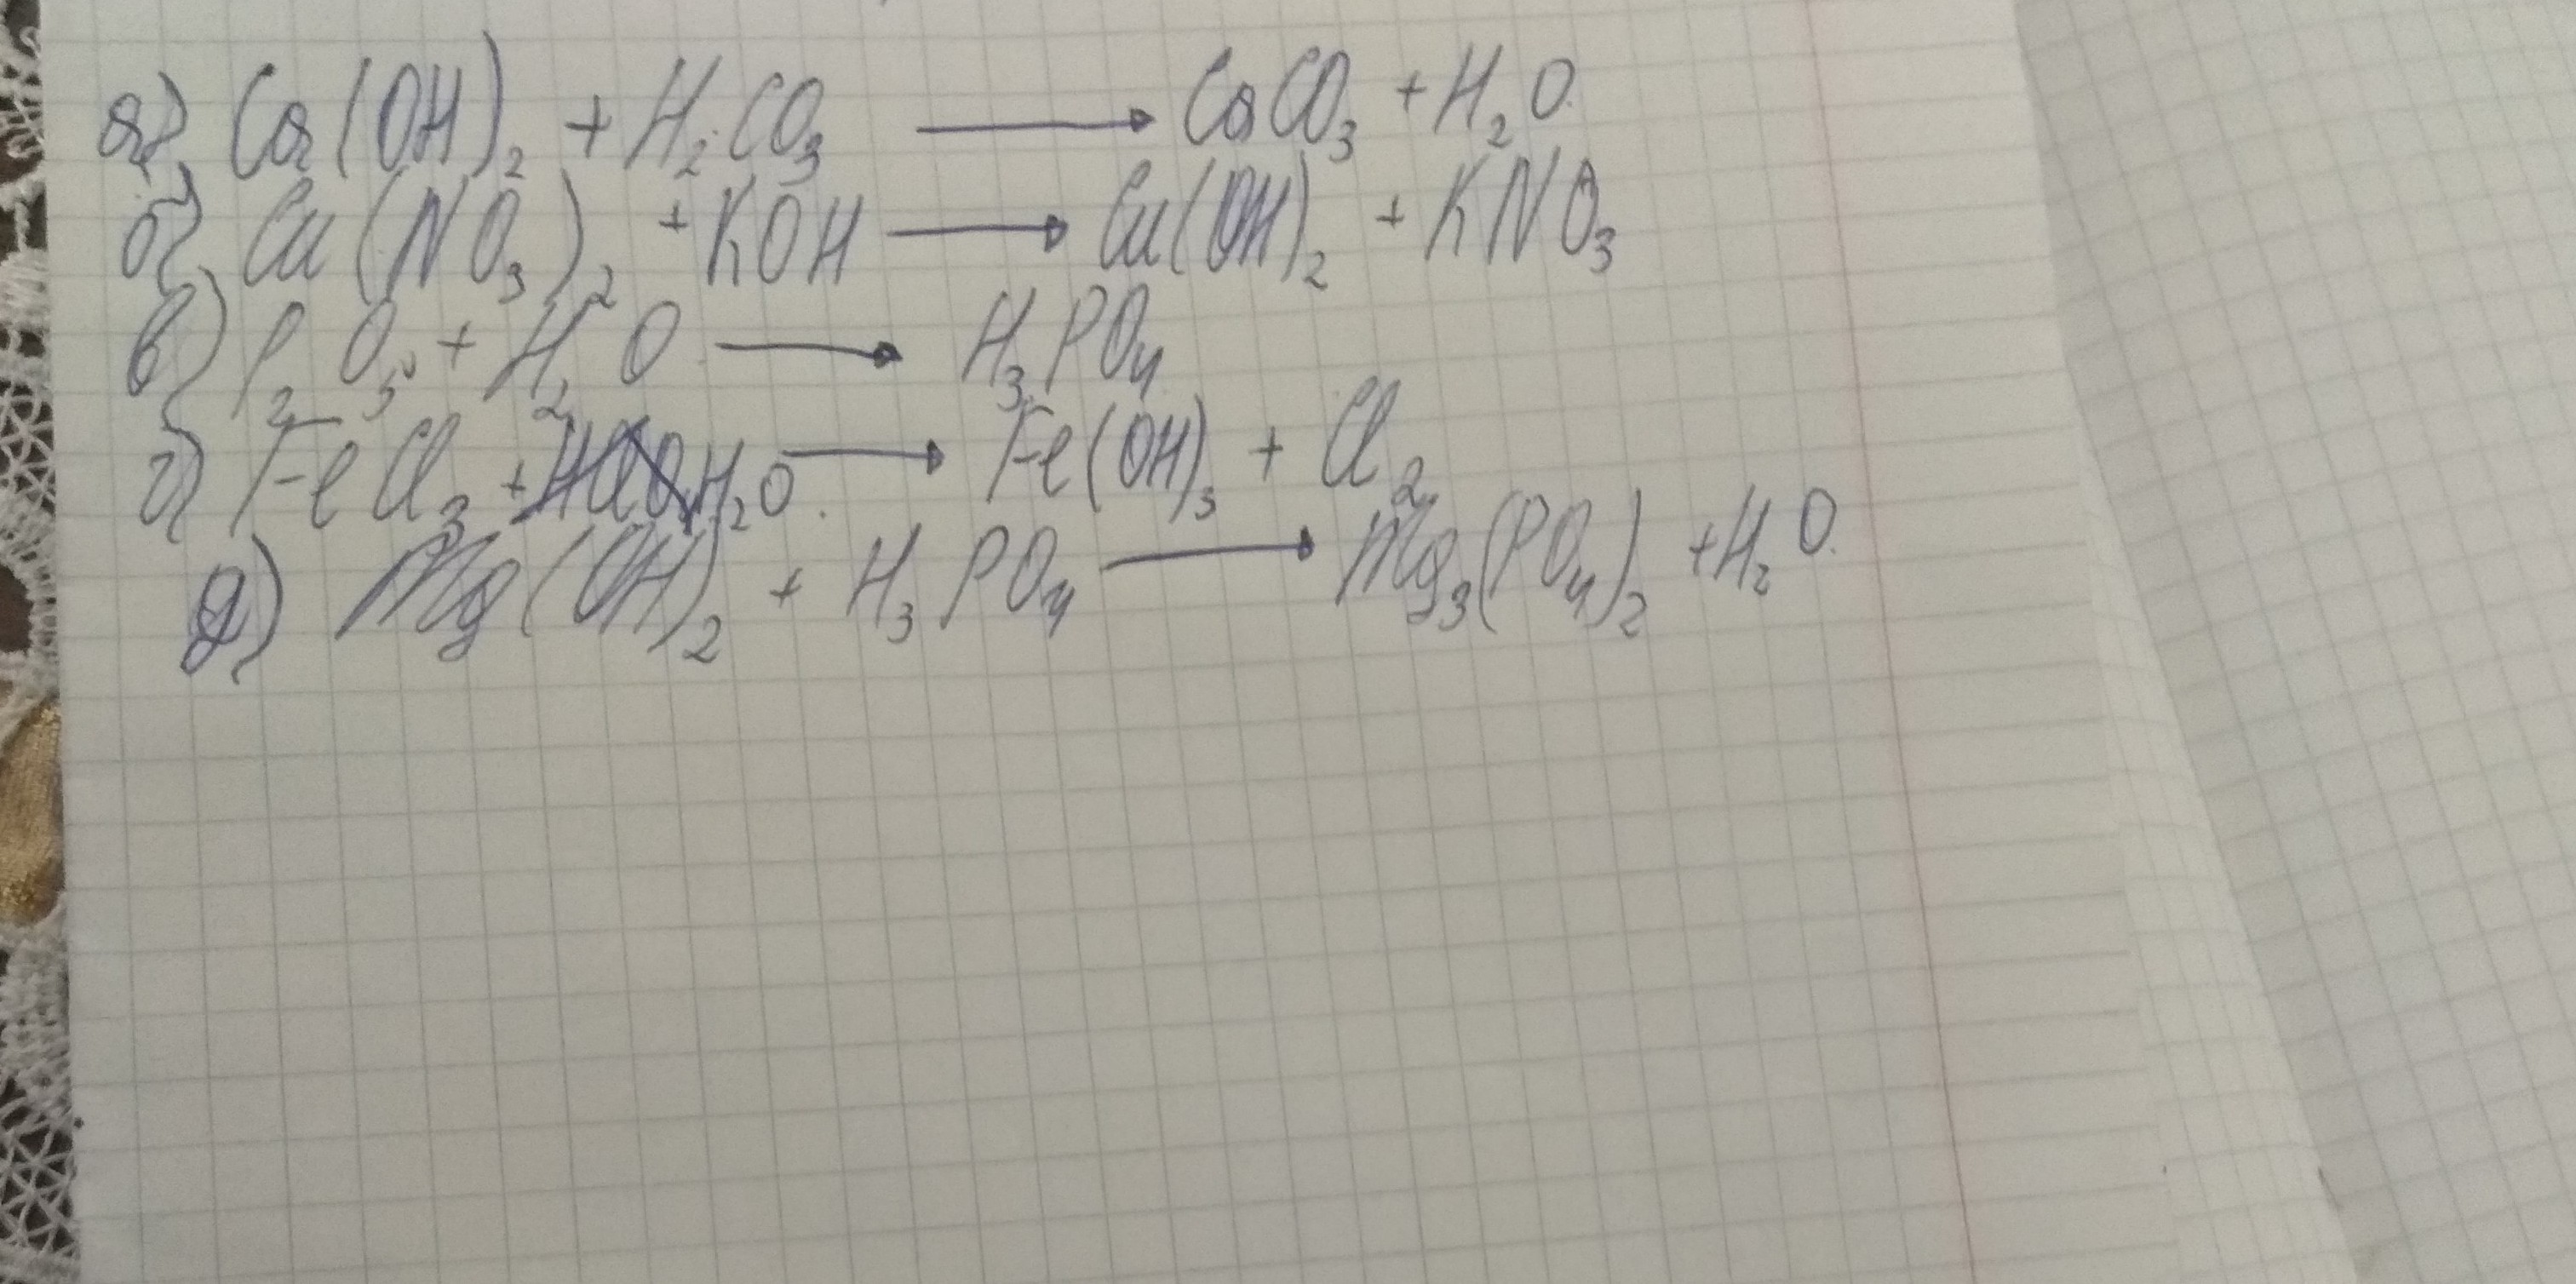 а) Ca(OH)₂ + H₂CO₃ → CaCO₃ + H₂O.
б) Cu(NO₃)₂ + KOH → Cu(OH)₂ + KNO₃
в) P₂O₅ + H₂O → H₃PO₄
г) FeCl₃ + H₂O → Fe(OH)₃ + Cl₂
д) Mg(OH)₂ + H₃PO₄ → Mg₃(PO₄)₂ + H₂O.